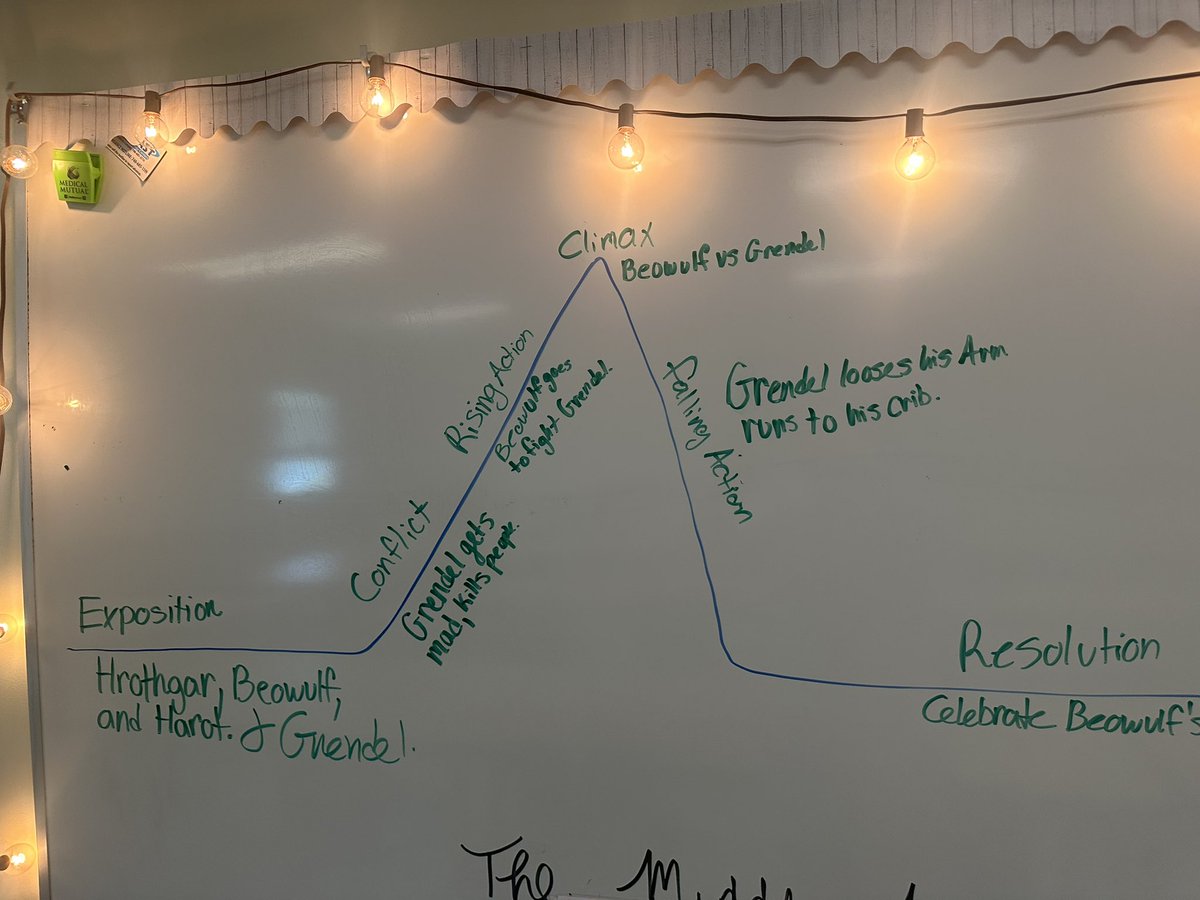 MEDICAL
MUTUAL
Climax
Beowulf vs Grendel
Rising Action
Beowulf goes
to fight Grendel.
Falling Action
Grendel looses his Arm
runs to his crib.
Conflict
Grendel gets
mad, kills people.
Exposition
Hrothgar, Beowulf,
and Harot. & Grendel.
Resolution
Celebrate Beowulf's
The